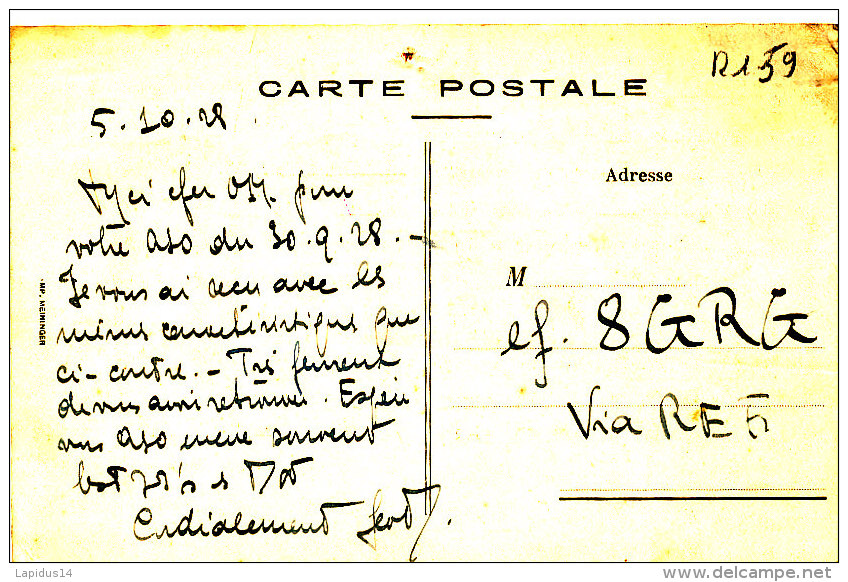 R159
CARTE POSTALE
5.10.28
cher OM. pour
votre QSO du 30.9.28.-
Je vous ai reçu avec les
mêmes caractéristiques que
ci-contre. - Très
de vous avoir retrouvé. Espère
vous QSO encore souvent
73's
Cordialement
IMP. MEININGER
Adresse
M
ef. 8GRG
Via REF
Lapidus14
www.delcampe.net